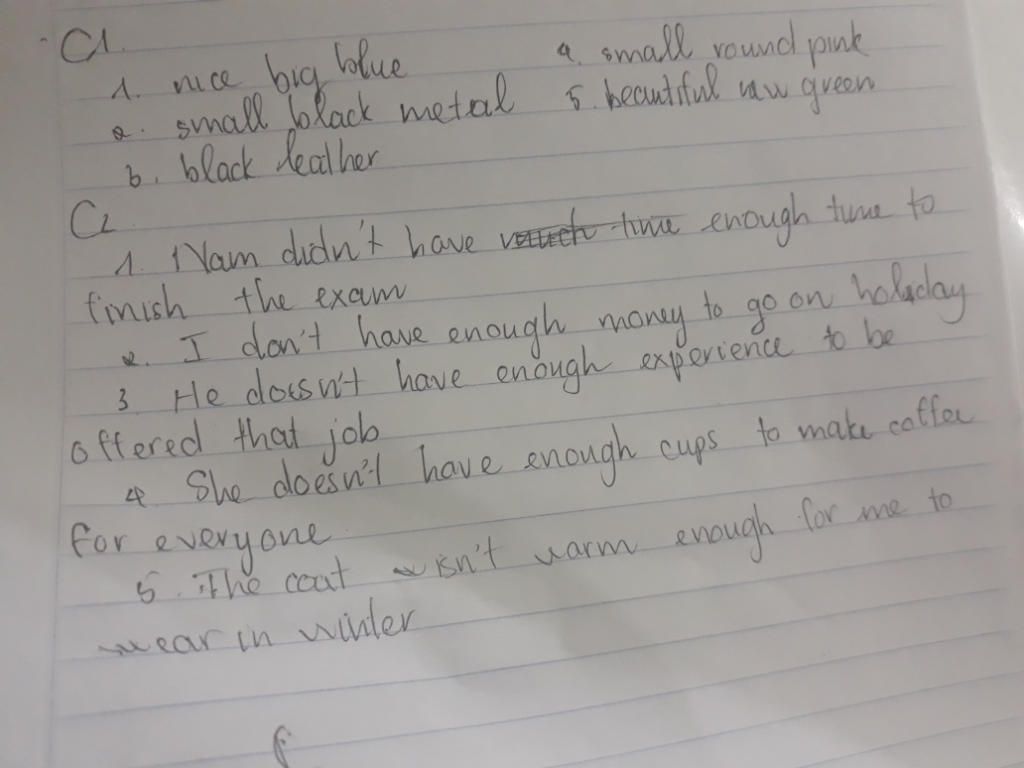 C1.
1. nice big blue 4. small round pink
2. small black metal 5. beautiful new green
b. black leather
C2
1. Nam didn't have enough time to
finish the exam
2. I don't have enough money to go on holiday
3 He doesn't have enough experience to be
offered that job
4 She doesn't have enough cups to make coffee
for everyone
5. The coat isn't warm enough for me to
wear in winter